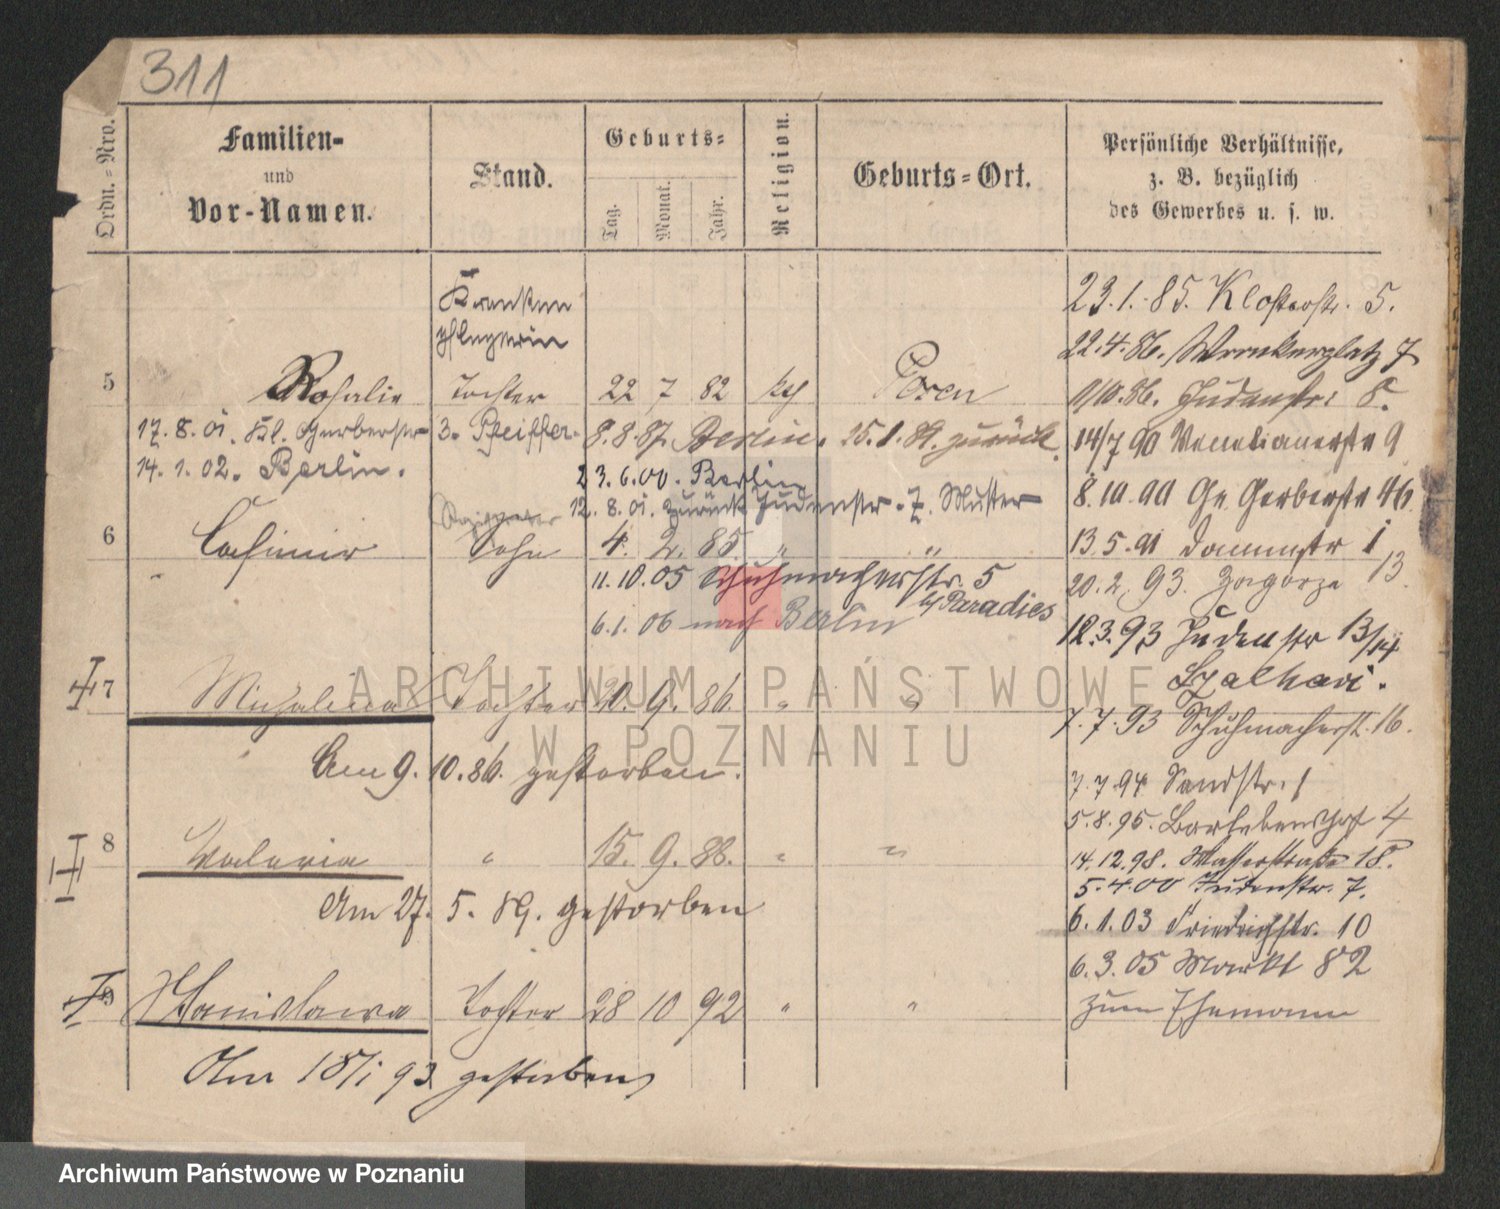 311
Ordn.-Nro.
Familien-
und
Vor-Namen.
Stand.
Geburts-
Tag.
Monat.
Jahr.
Religion.
Geburts-Ort.
Persönliche Verhältnisse,
z. B. bezüglich
des Gewerbes u. s. w.
Kranken
pflegerin
5 Rosalie Tochter 22 7 82 kth Posen
17.8.01. Kl. Gerberstr 3. Pfeiffer. 8.8.87. Berlin. 15.1.89. zurück.
14.1.02. Berlin. 23.6.00. Berlin
12.8.01. zurück Judenstr. 7. Muster
6 Casimir Sohn 4. 2. 85. " "
11.10.05 Schuhmacherstr. 5
b/ Paradies
6.1.06 nach Berlin
7 Michalina Tochter 20. 9. 86. " "
Am 9.10.86. gestorben.
8 Valeria " 15. 9. 88. " "
Am 27. 5. 89. gestorben
9 Stanislawa Tochter 28 10 92 " "
Am 18/1 93 gestorben
23.1.85. Klosterstr. 5.
22.4.86. Wronkerplatz 7
1/10.86. Judenstr: 8.
14/7 90 Venetianerstr 9
8.10.90 Gr. Gerberstr 46
13.5.91 Dammstr 1
20.2.93. Zagorze 13.
12.3.93 Judenstr 13/14
7.7.93 Schuhmacherst. 16.
7.7.94 Sandstr. 1
5.8.95. Barlebenshof 4
14.12.98. Wasserstraße 18.
5.4.00 Judenstr. 7.
6.1.03 Friedrichstr. 10
6.3.05 Markt 82
zum Ehemann
ARCHIWUM PAŃSTWOWE
W POZNANIU
Archiwum Państwowe w Poznaniu